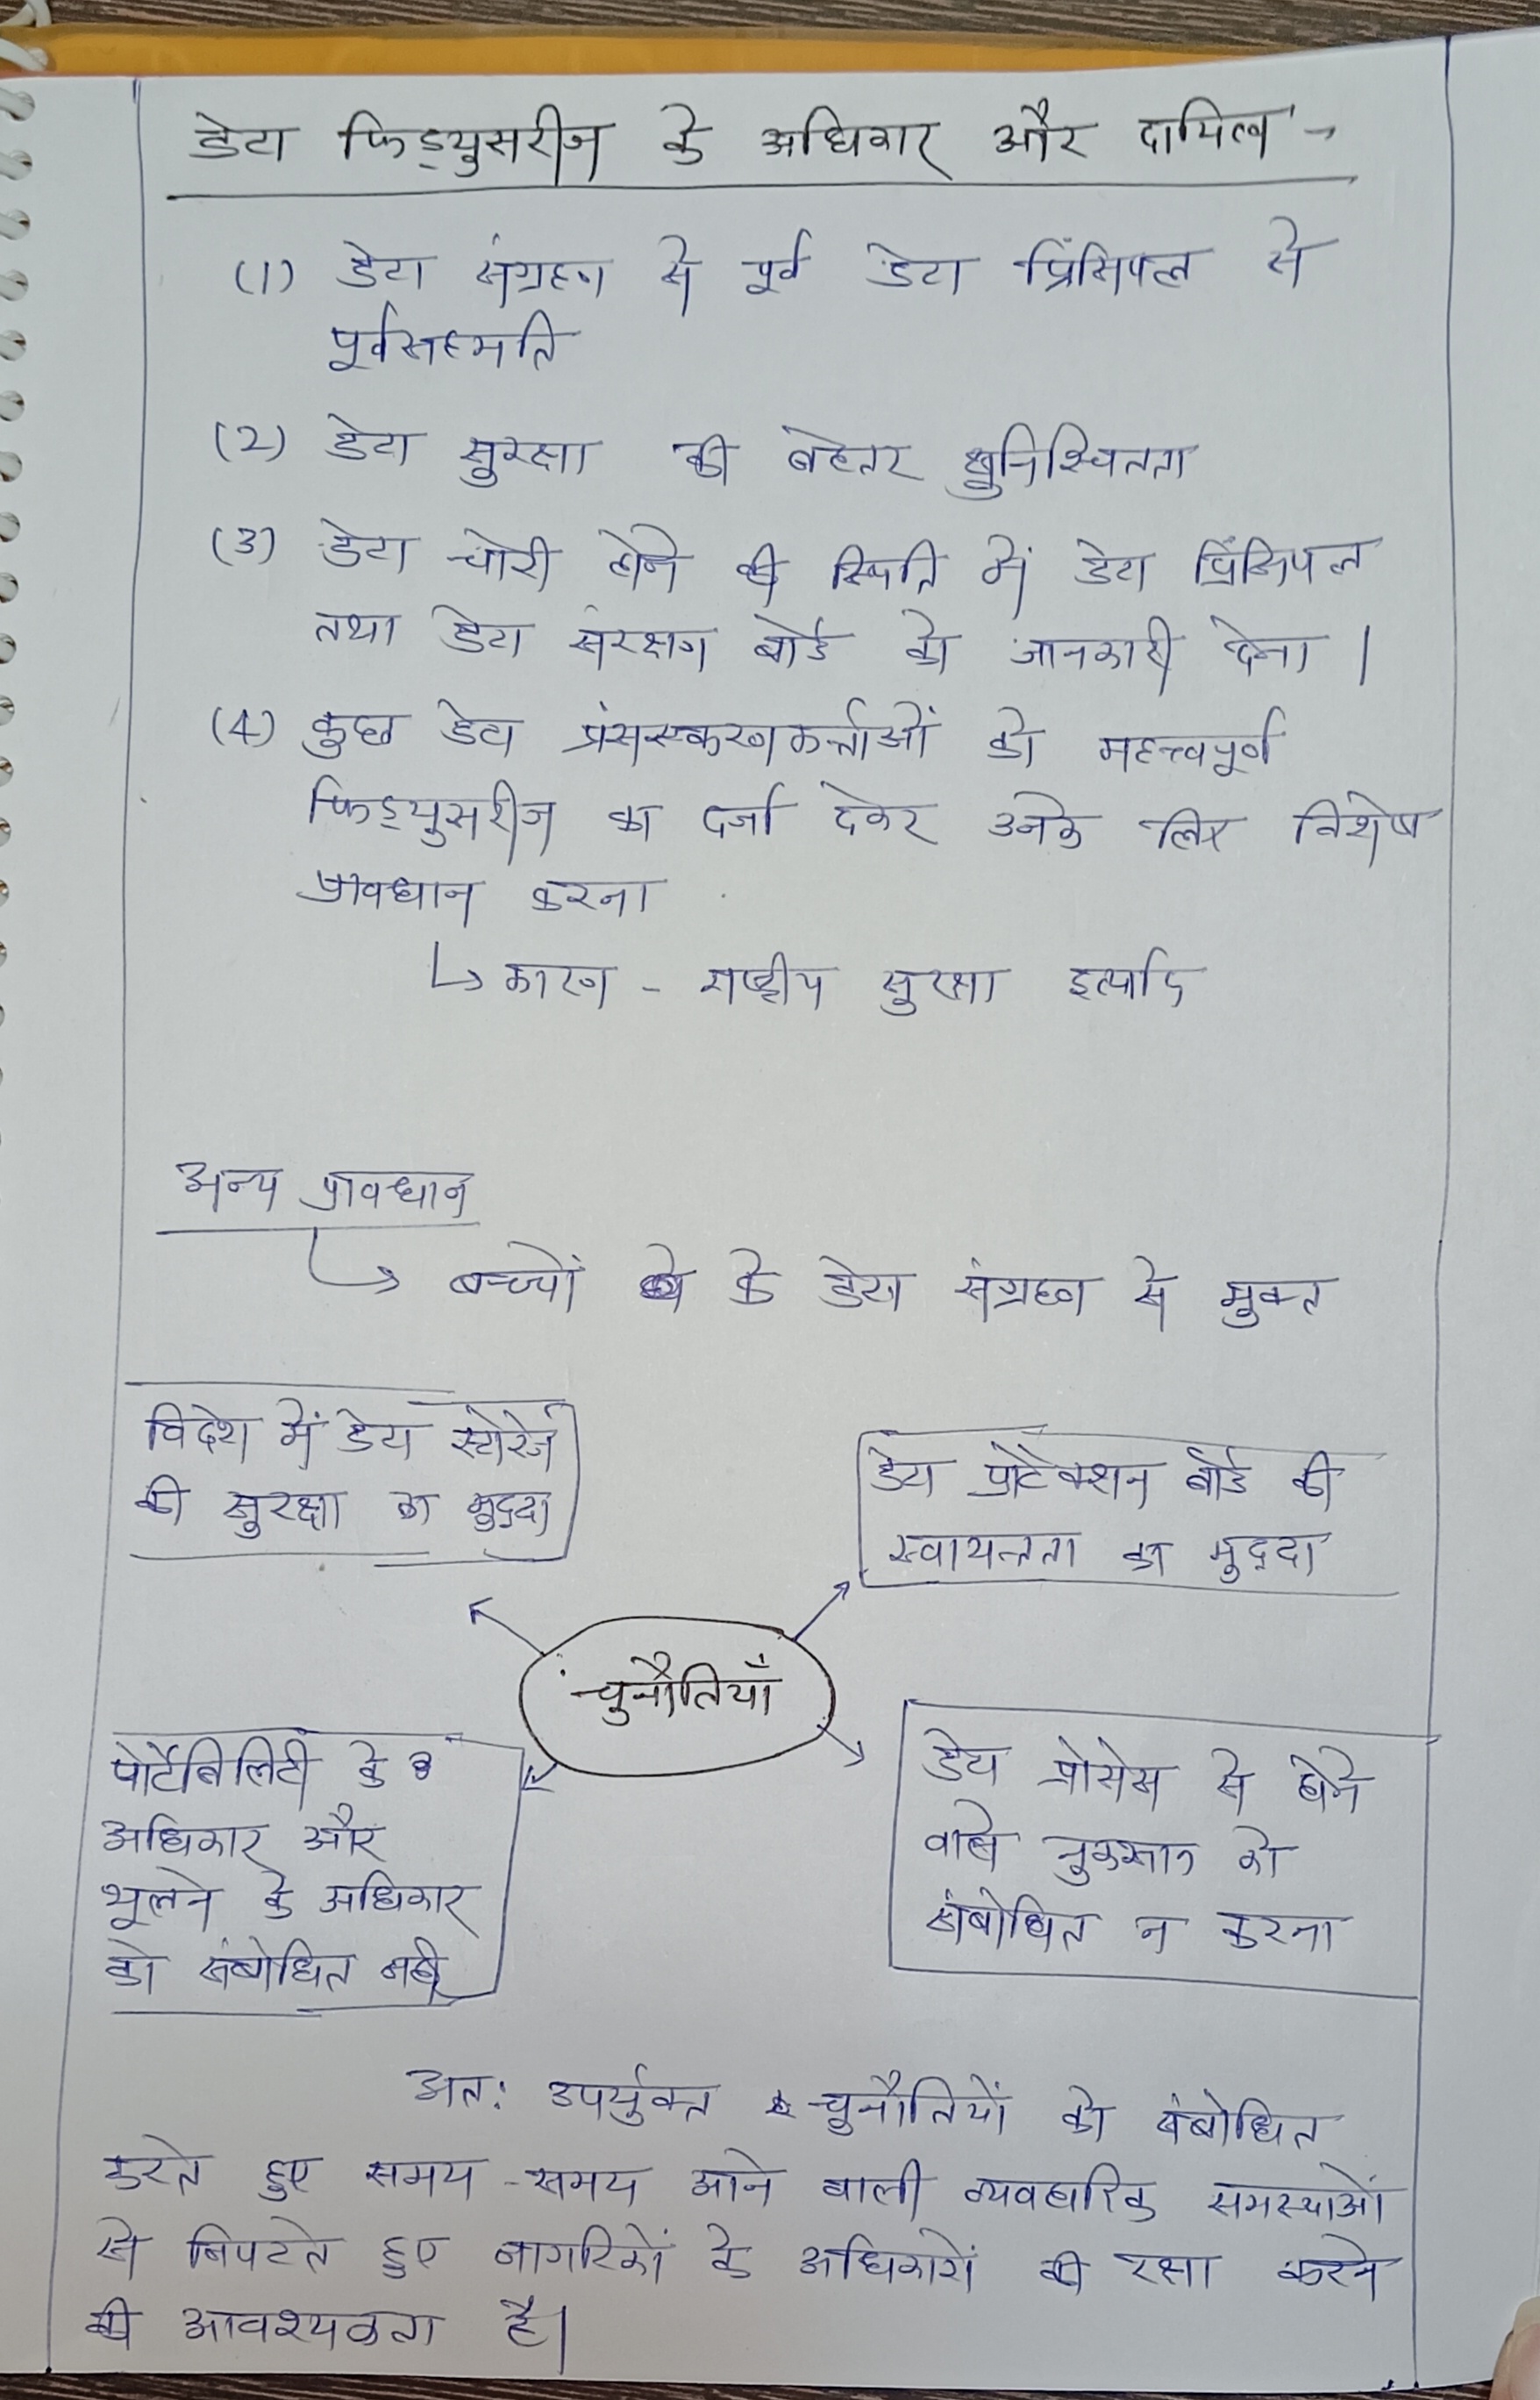 डेटा फिड्युसरीज के अधिकार और दायित्व -
(1) डेटा संग्रहण से पूर्व डेटा प्रिंसिपल से
पूर्वसहमति
(2) डेटा सुरक्षा की बेहतर सुनिश्चितता
(3) डेटा चोरी होने की स्थिति में डेटा प्रिंसिपल
तथा डेटा संरक्षण बोर्ड को जानकारी देना।
(4) कुछ डेटा प्रंसस्करणकर्त्ताओं को महत्त्वपूर्ण
फिड्युसरीज का दर्जा देकर उनके लिए विशेष
प्रावधान करना
↳ कारण - राष्ट्रीय सुरक्षा इत्यादि
अन्य प्रावधान
↳ बच्चों के डेटा संग्रहण से मुक्त
विदेश में डेटा स्टोरेज
की सुरक्षा का मुद्दा
डेटा प्रोटेक्शन बोर्ड की
स्वायत्तता का मुद्दा
चुनौतियाँ
पोर्टेबिलिटी के
अधिकार और
भूलने के अधिकार
को संबोधित नहीं
डेटा प्रोसेस से होने
वाले नुकसान को
संबोधित न करना
अतः उपर्युक्त चुनौतियों को संबोधित
करते हुए समय-समय आने वाली व्यवहारिक समस्याओं
से निपटते हुए नागरिकों के अधिकारों की रक्षा करने
की आवश्यकता है।